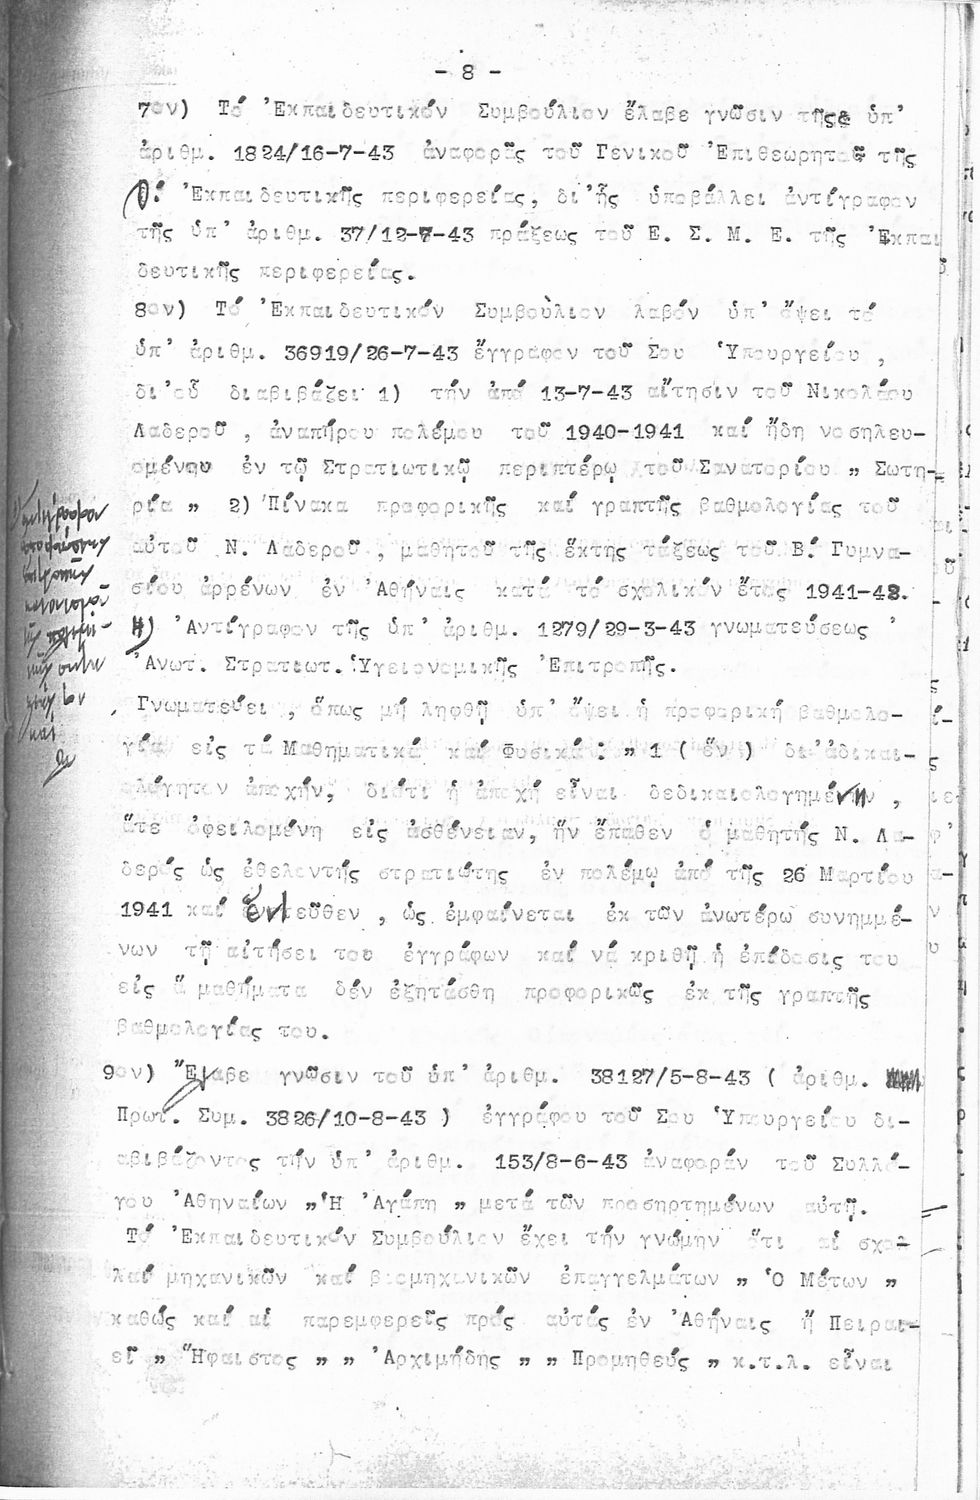 - 8 -
7ον) Τό Ἐκπαιδευτικόν Συμβούλιον ἔλαβε γνῶσιν τῆς ὑπ'
ἀριθμ. 1824/16-7-43 ἀναφορᾶς τοῦ Γενικοῦ Ἐπιθεωρητοῦ τῆς
Θ΄. Ἐκπαιδευτικῆς περιφερείας, δι'ἧς ὑποβάλλει ἀντίγραφον
τῆς ὑπ' ἀριθμ. 37/12-7-43 πράξεως τοῦ Ε. Σ. Μ. Ε. τῆς Ἐκπαι
δευτικῆς περιφερείας.
8ον) Τό Ἐκπαιδευτικόν Συμβοὺλιον λαβόν ὑπ' ὄψει τό
ὑπ' ἀριθμ. 36919/26-7-43 ἔγγραφον τοῦ Σου Ὑπουργείου ,
δι'οὗ διαβιβάζει 1) τήν ἀπό 13-7-43 αἴτησιν τοῦ Νικολάου
Λαδεροῦ , ἀναπήρου πολέμου τοῦ 1940-1941 καί ἤδη νοσηλευ-
ομένου ἐν τῷ Στρατιωτικῷ περιπτέρῳ τοῦ Σανατορίου " Σωτη-
ρία " 2) Πίνακα προφορικῆς καί γραπτῆς βαθμολογίας τοῦ
αὐτοῦ Ν. Λαδεροῦ , μαθητοῦ τῆς ἕκτης τάξεως τοῦ Β΄. Γυμνα-
σίου ἀρρένων ἐν Ἀθήναις κατά τό σχολικόν ἔτος 1941-42.
Ἀντίγραφον τῆς ὑπ' ἀριθμ. 1279/29-3-43 γνωματεύσεως '
Ἀνωτ. Στρατιωτ. Ὑγειονομικῆς Ἐπιτροπῆς.
Γνωματεύει , ὅπως μή ληφθῇ ὑπ' ὄψει ἡ προφορική βαθμολο-
γία εἰς τά Μαθηματικά καί Φυσικά : " 1 ( ἕν ) δι'ἀδικαι-
ολόγητον ἀποχήν, διότι ἡ ἀποχή εἶναι δεδικαιολογημένην ,
ἅτε ὀφειλομένη εἰς ἀσθένειαν, ἥν ἔπαθεν ὁ μαθητής Ν. Λα-
δερός ὡς ἐθελοντής στρατιώτης ἐν πολέμῳ ἀπό τῆς 26 Μαρτίου
1941 καί ἐντεῦθεν , ὡς ἐμφαίνεται ἐκ τῶν ἀνωτέρω συνημμέ-
νων τῇ αἰτήσει του ἐγγράφων καί νά κριθῇ ἡ ἐπίδοσις του
εἰς ἅ μαθήματα δέν ἐξητάσθη προφορικῶς ἐκ τῆς γραπτῆς
βαθμολογίας του.
9ον) Ἔλαβε γνῶσιν τοῦ ὑπ' ἀριθμ. 38127/5-8-43 ( ἀριθμ.
Πρωτ. Συμ. 3826/10-8-43 ) ἐγγράφου τοῦ Σου Ὑπουργείου δι-
αβιβάζοντος τήν ὑπ' ἀριθμ. 153/8-6-43 ἀναφοράν τοῦ Συλλό-
γου Ἀθηναίων "Ἡ Ἀγάπη " μετά τῶν προσηρτημένων αὐτῇ.
Τό Ἐκπαιδευτικόν Συμβούλιον ἔχει τήν γνώμην ὅτι αἱ σχολ
λαί μηχανικῶν καί βιομηχανικῶν ἐπαγγελμάτων " Ὁ Μέτων "
καθώς καί αἱ παρεμφερεῖς πρός αὐτάς ἐν Ἀθήναις ἤ Πειραι-
εῖ " Ἥφαιστος " " Ἀρχιμήδης " " Προμηθεύς " κ.τ.λ. εἶναι